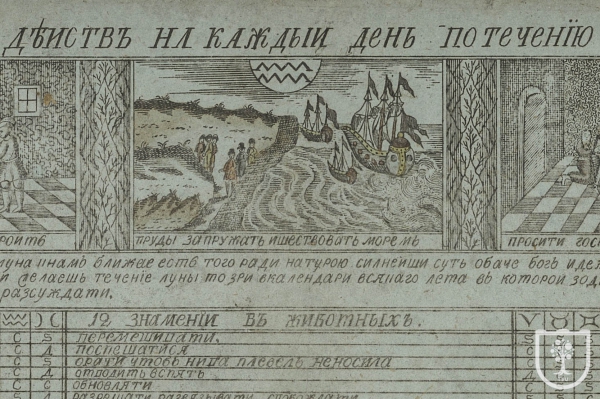 ДѢИСТВЪ НА КАЖДЫИ ДЕНЬ ПО ТЕЧЕНІЮ
РОИТЬ
ПРУДЫ ЗАПРУЖАТЬ ИШЕСТВОВАТЬ МОРЕМЬ
ПРОСИТИ ГОС
луна инамъ ближае есть того ради натурою силнеиши суть обаче богъ иде
делаешь теченіе луны то зри вкалендари всякаго лета въ которои зод
разсуждати.
12 ЗНАМЕНІИ ВЪ ЖИВОТНЫХЪ.
перемещати.
поспешатися
орачи чтобъ нива плевель неносила
отходить вспять
обновляти